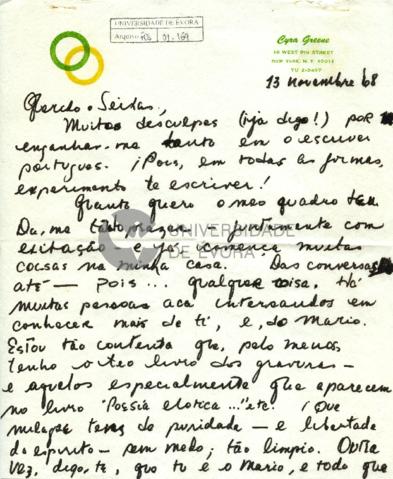 UNIVERSIDADE DE ÉVORA
Arquivo
Cyra Greene
NEW YORK, N.Y. 10011
13 novembro 68
Querido Seixas,
Muitas desculpas (ija digo!) por
enganhar-me tanto em o escriver
portugues. ¡Pois, em todas as formas,
experimento te escriver!
Quanto quero o meo quadro teu.
Da-me tão prazer — juntamente com
exitação — e já començe muitas
coisas na minha casa. Das conversas
até — pois... qualquer coisa. Há
muitas pessoas aca interesandos em
conhecer mais de ti, e, do Mario.
Estou tão contenta que, pelo menos,
tenho o teo livro dos gravuras —
e aquelos especialmente que aparecem
no livro "Possia erotica..." etc. ¡Que
milagre tens de puridade — e libertade
do espirito — sem medo; tão limpio. Outra
vez, digo, te, que tu e o Mario, e todo que
UNIVERSIDADE
DE ÉVORA